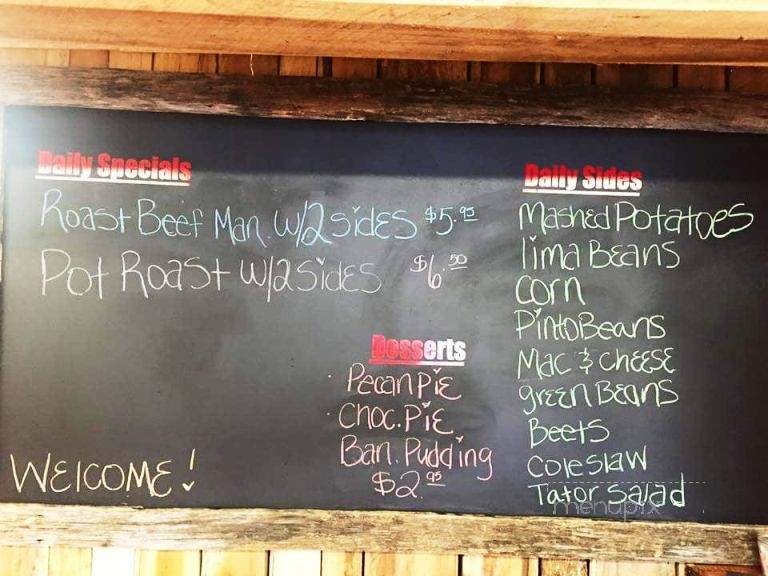 Daily Specials
Roast Beef Man. W/2 sides $5.95
Pot Roast W/2 Sides $6.50
Desserts
Pecan Pie
Choc. Pie
Ban. Pudding
$2.95
WElCOME!
Daily Sides
Mashed Potatoes
lima Beans
corn
Pinto Beans
Mac & cheese
green Beans
Beets
Coleslaw
Tator Salad
menupix